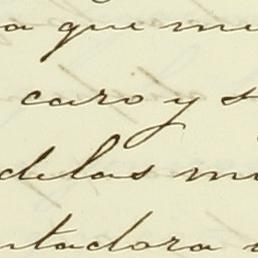 a que me
caro y s
delas m
ntadora